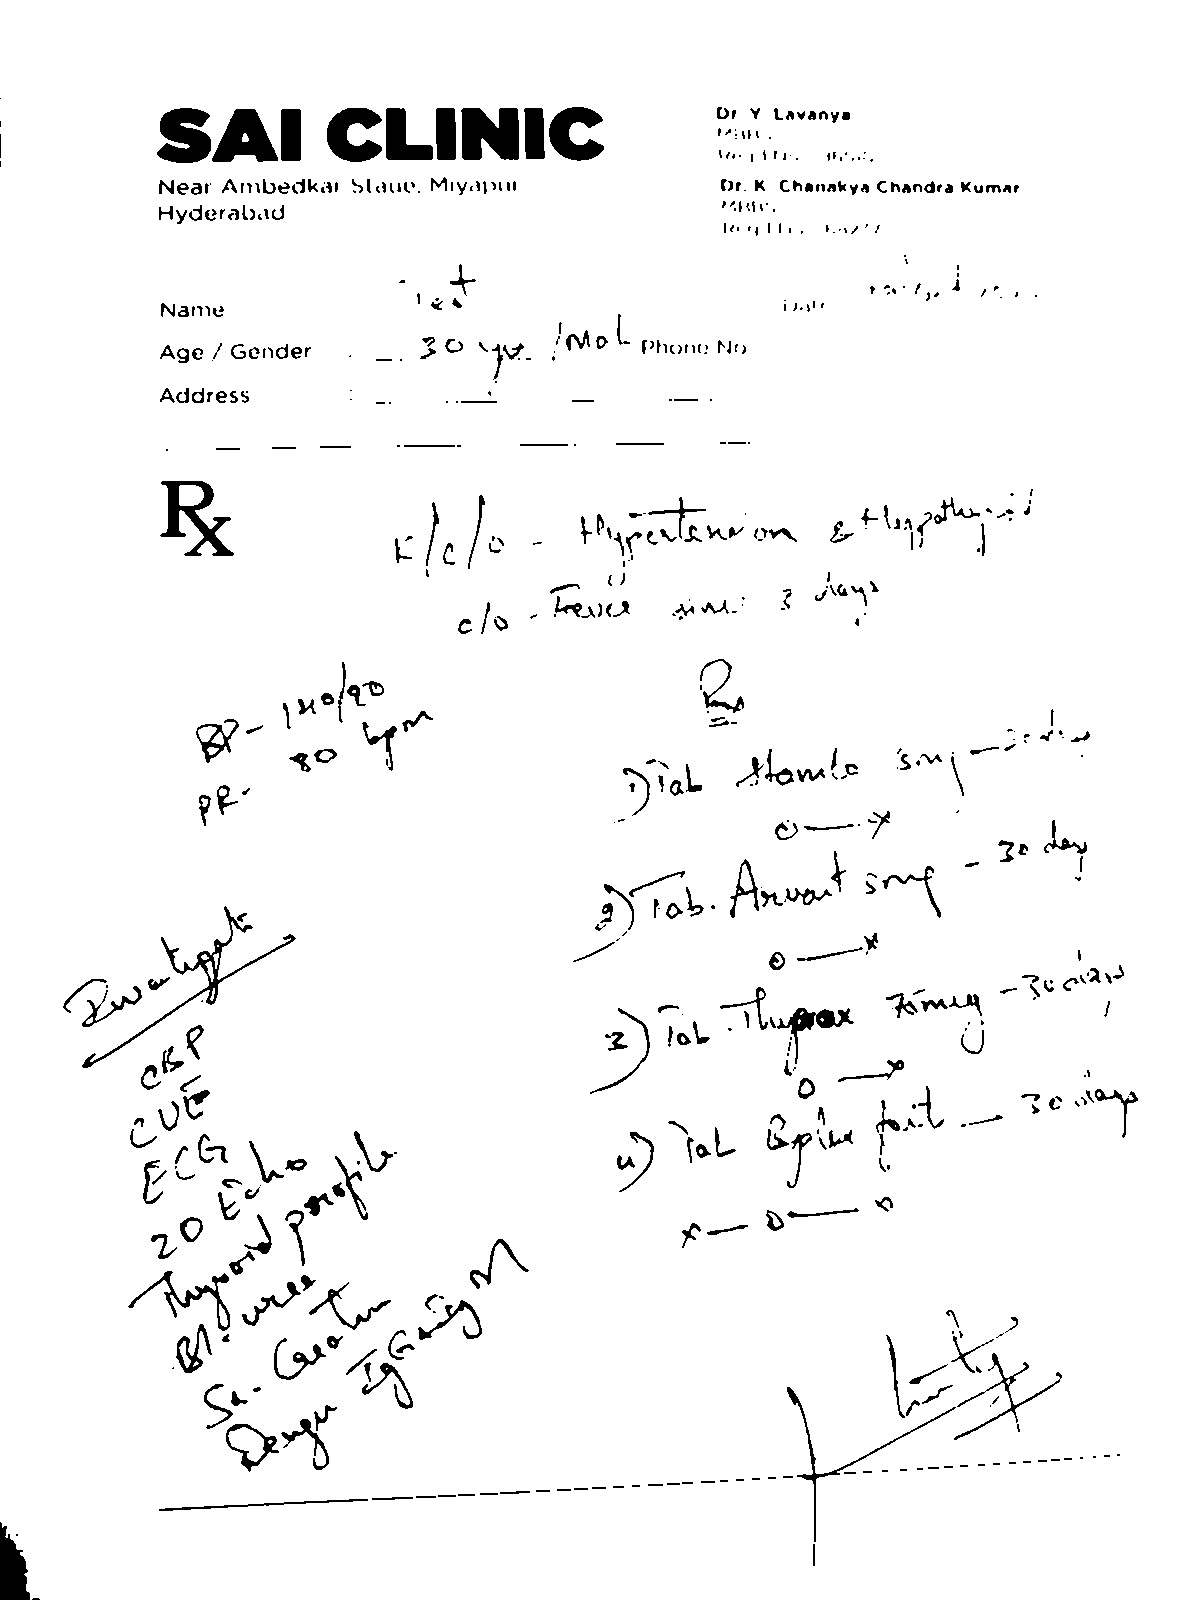 SAI CLINIC
Near Ambedkar Statue, Miyapur
Hyderabad
Dr Y Lavanya
MBBS,
Dr. K Chanakya Chandra Kumar
MBBS,
Name Test
Date
Age / Gender 30 yr /Mal Phone No
Address
Rx
K/c/o - Hypertension & Hypothyroid
c/o - Fever since 3 days
BP - 140/90
PR - 80 bpm
Rx
1) Tab Stamlo 5mg - 30 days
o — x
2) Tab. Arvast 5mg - 30 day
o — x
3) Tab. Thyrox mcg - 30 days
o — x
4) Tab Bplex fort - 30 days
x — o — o
Investigate
CBP
CUE
ECG
2D Echo
Thyroid profile
Bl. urea
Sr. Creatin
Dengu IgG IgM